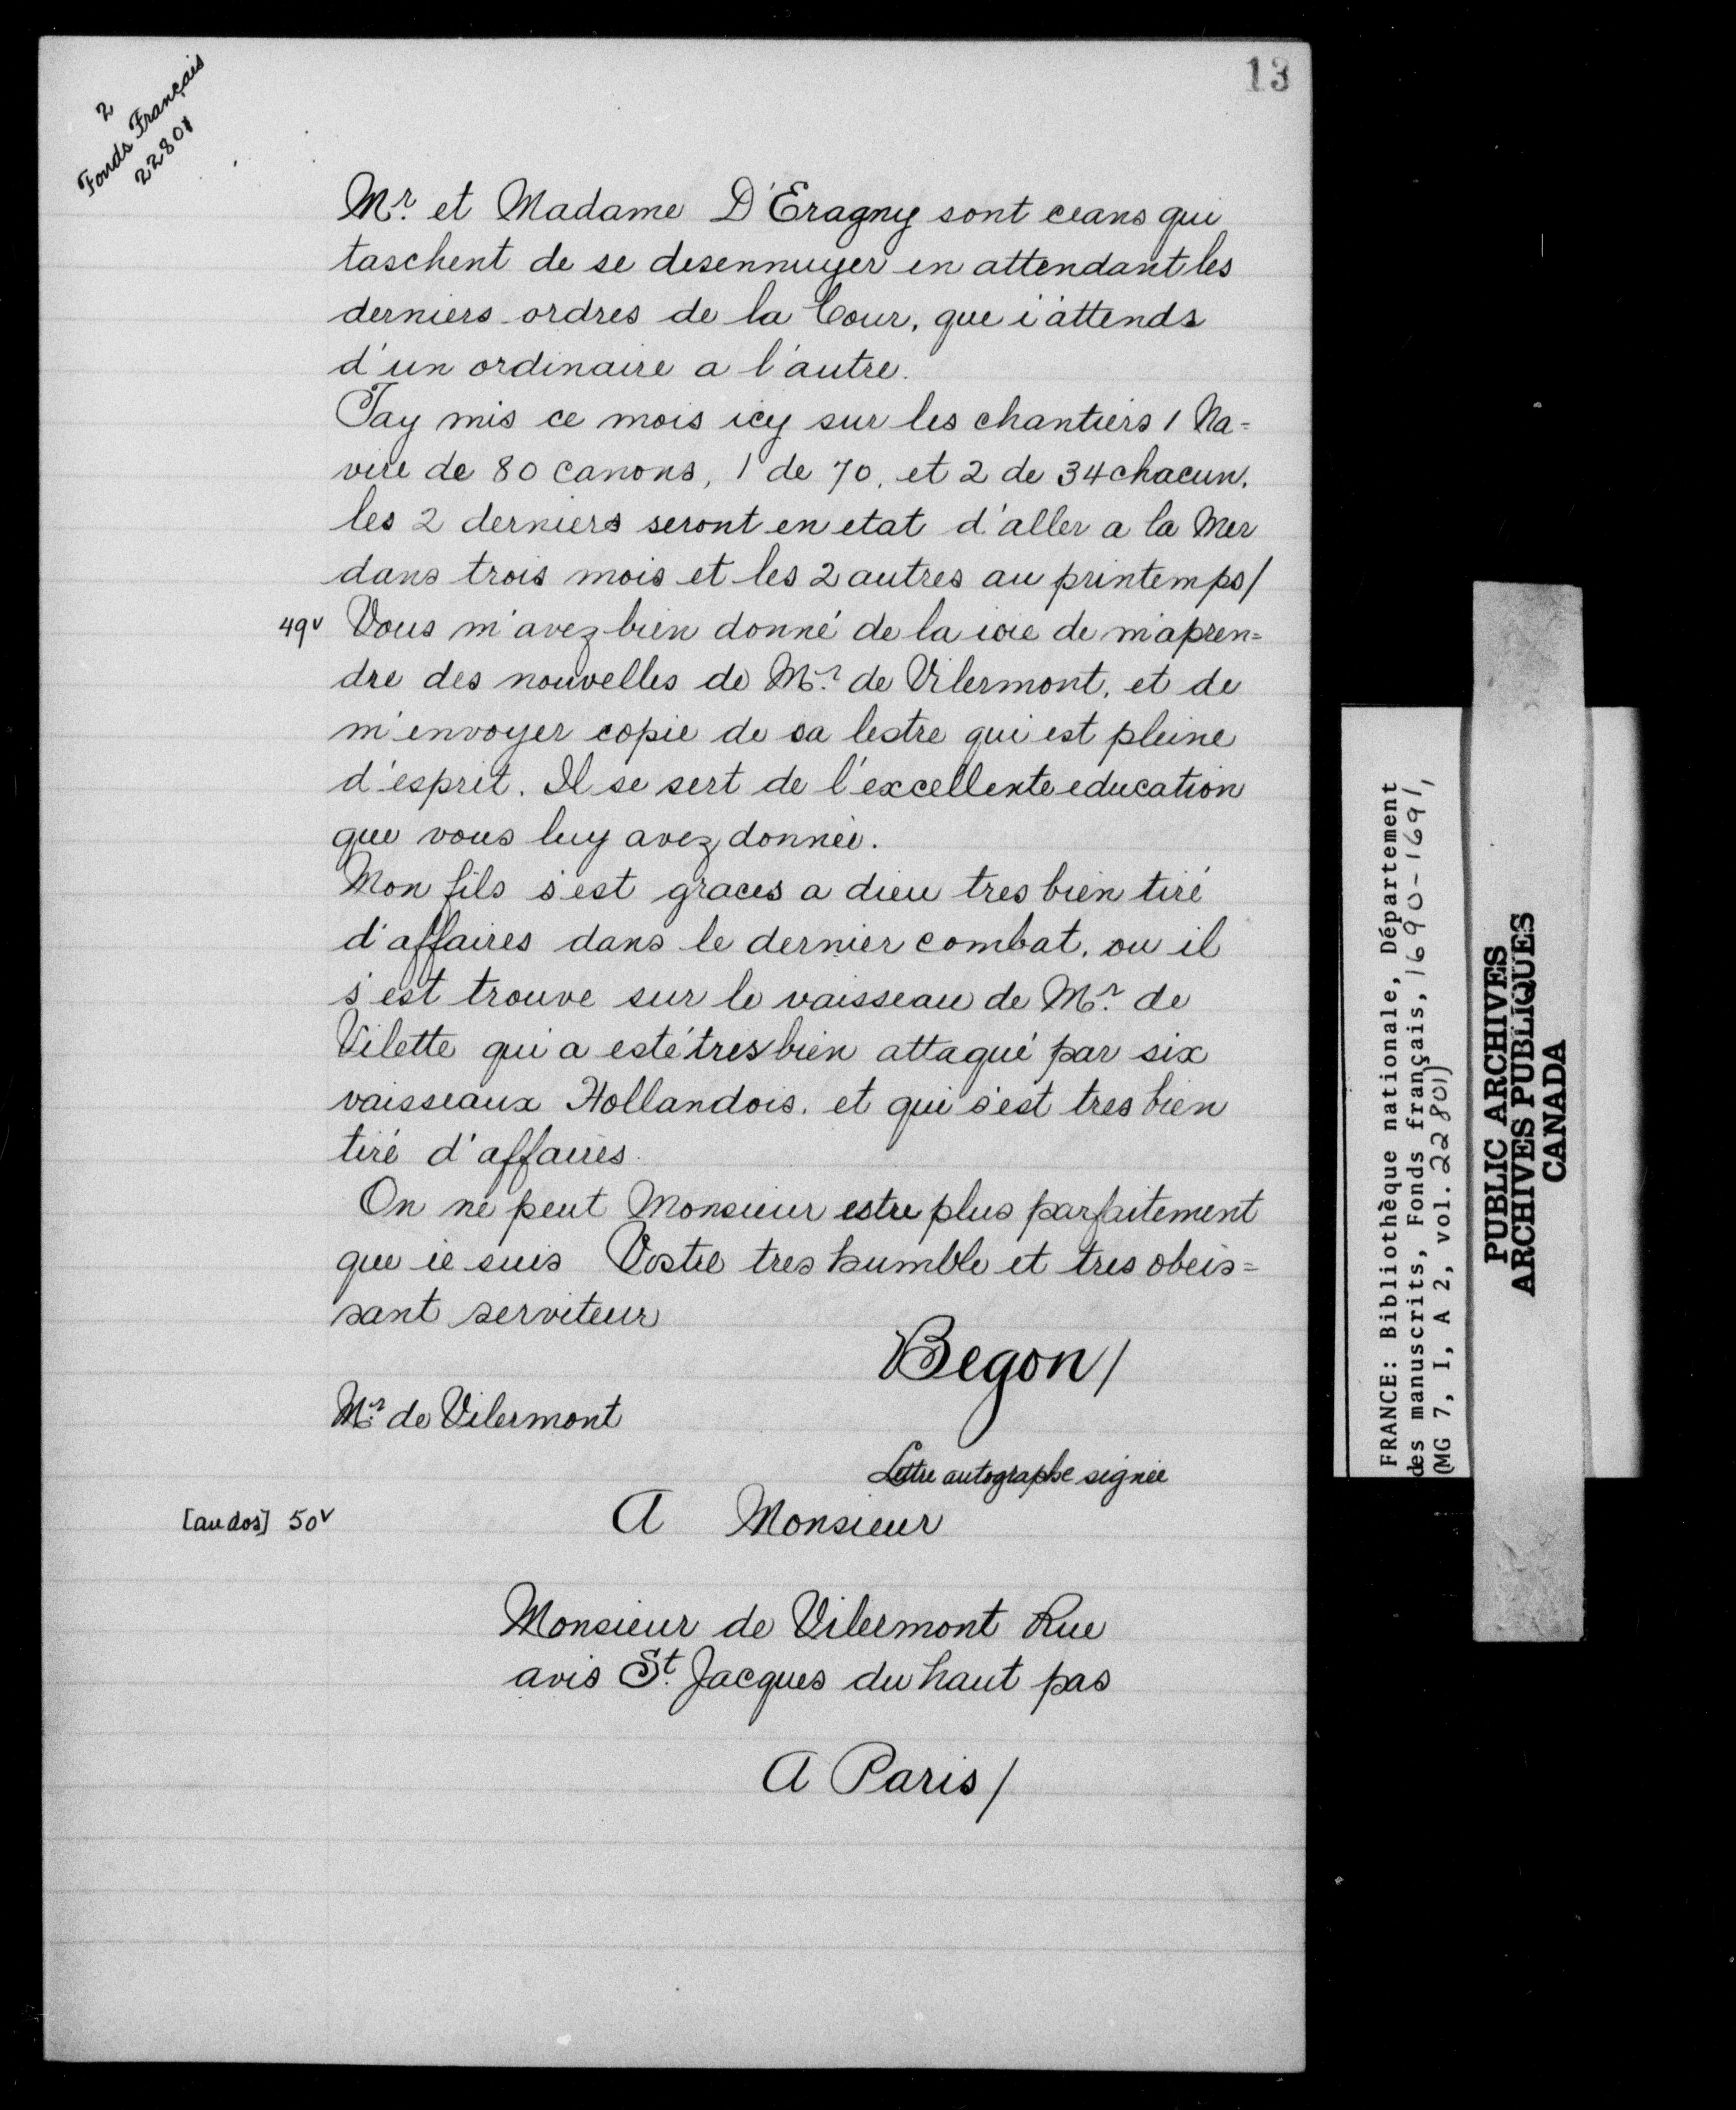 13
2
Fonds Français
22801
Mr. et Madame D'Eragny sont ceans qui
taschent de se desennuyer en attendant les
derniers ordres de la Cour, que i'attends
d'un ordinaire a l'autre.
Jay mis ce mois icy sur les chantiers 1 Na=
vire de 80 canons, 1 de 70, et 2 de 34 chacun.
les 2 derniers seront en etat d'aller a la Mer
dans trois mois et les 2 autres au printemps/
49v Vous m'avez bien donné de la ioie de m'apren=
dre des nouvelles de Mr. de Vilermont, et de
m'envoyer copie de sa lestre qui est pleine
d'esprit. Il se sert de l'excellente education
que vous luy avez donnée.
Mon fils s'est graces a dieu tres bien tiré
d'affaires dans le dernier combat, ou il
s'est trouve sur le vaisseau de Mr. de
Vilette qui a esté tres bien attaqué par six
vaisseaux Hollandois, et qui s'est tres bien
tiré d'affaires.
On ne peut Monsieur estre plus parfaitement
que ie suis Vostre tres humble et tres obeis=
sant serviteur
Begon/
Mr. de Vilermont
Lettre autographe signée
[au dos] 50v A Monsieur
Monsieur de Vilermont Rue
avis St. Jacques du haut pas
A Paris/
FRANCE: Bibliothèque nationale, Département
des manuscrits, Fonds français, 1690-1691,
(MG 7, I, A 2, vol. 22801)
PUBLIC ARCHIVES
ARCHIVES PUBLIQUES
CANADA